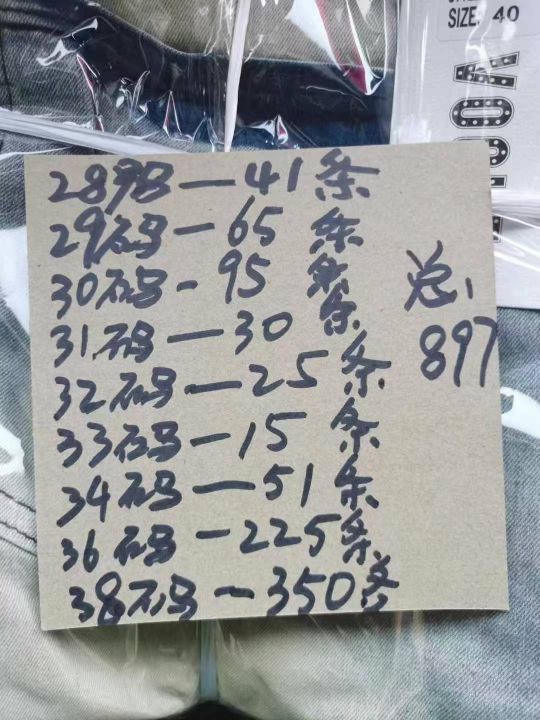 SIZE: 40
28码—41条
29码—65条
30码-95条
31码—30条
32码—25条
33码—15条
34码—51条
36码—225条
38码—350条
总,
897